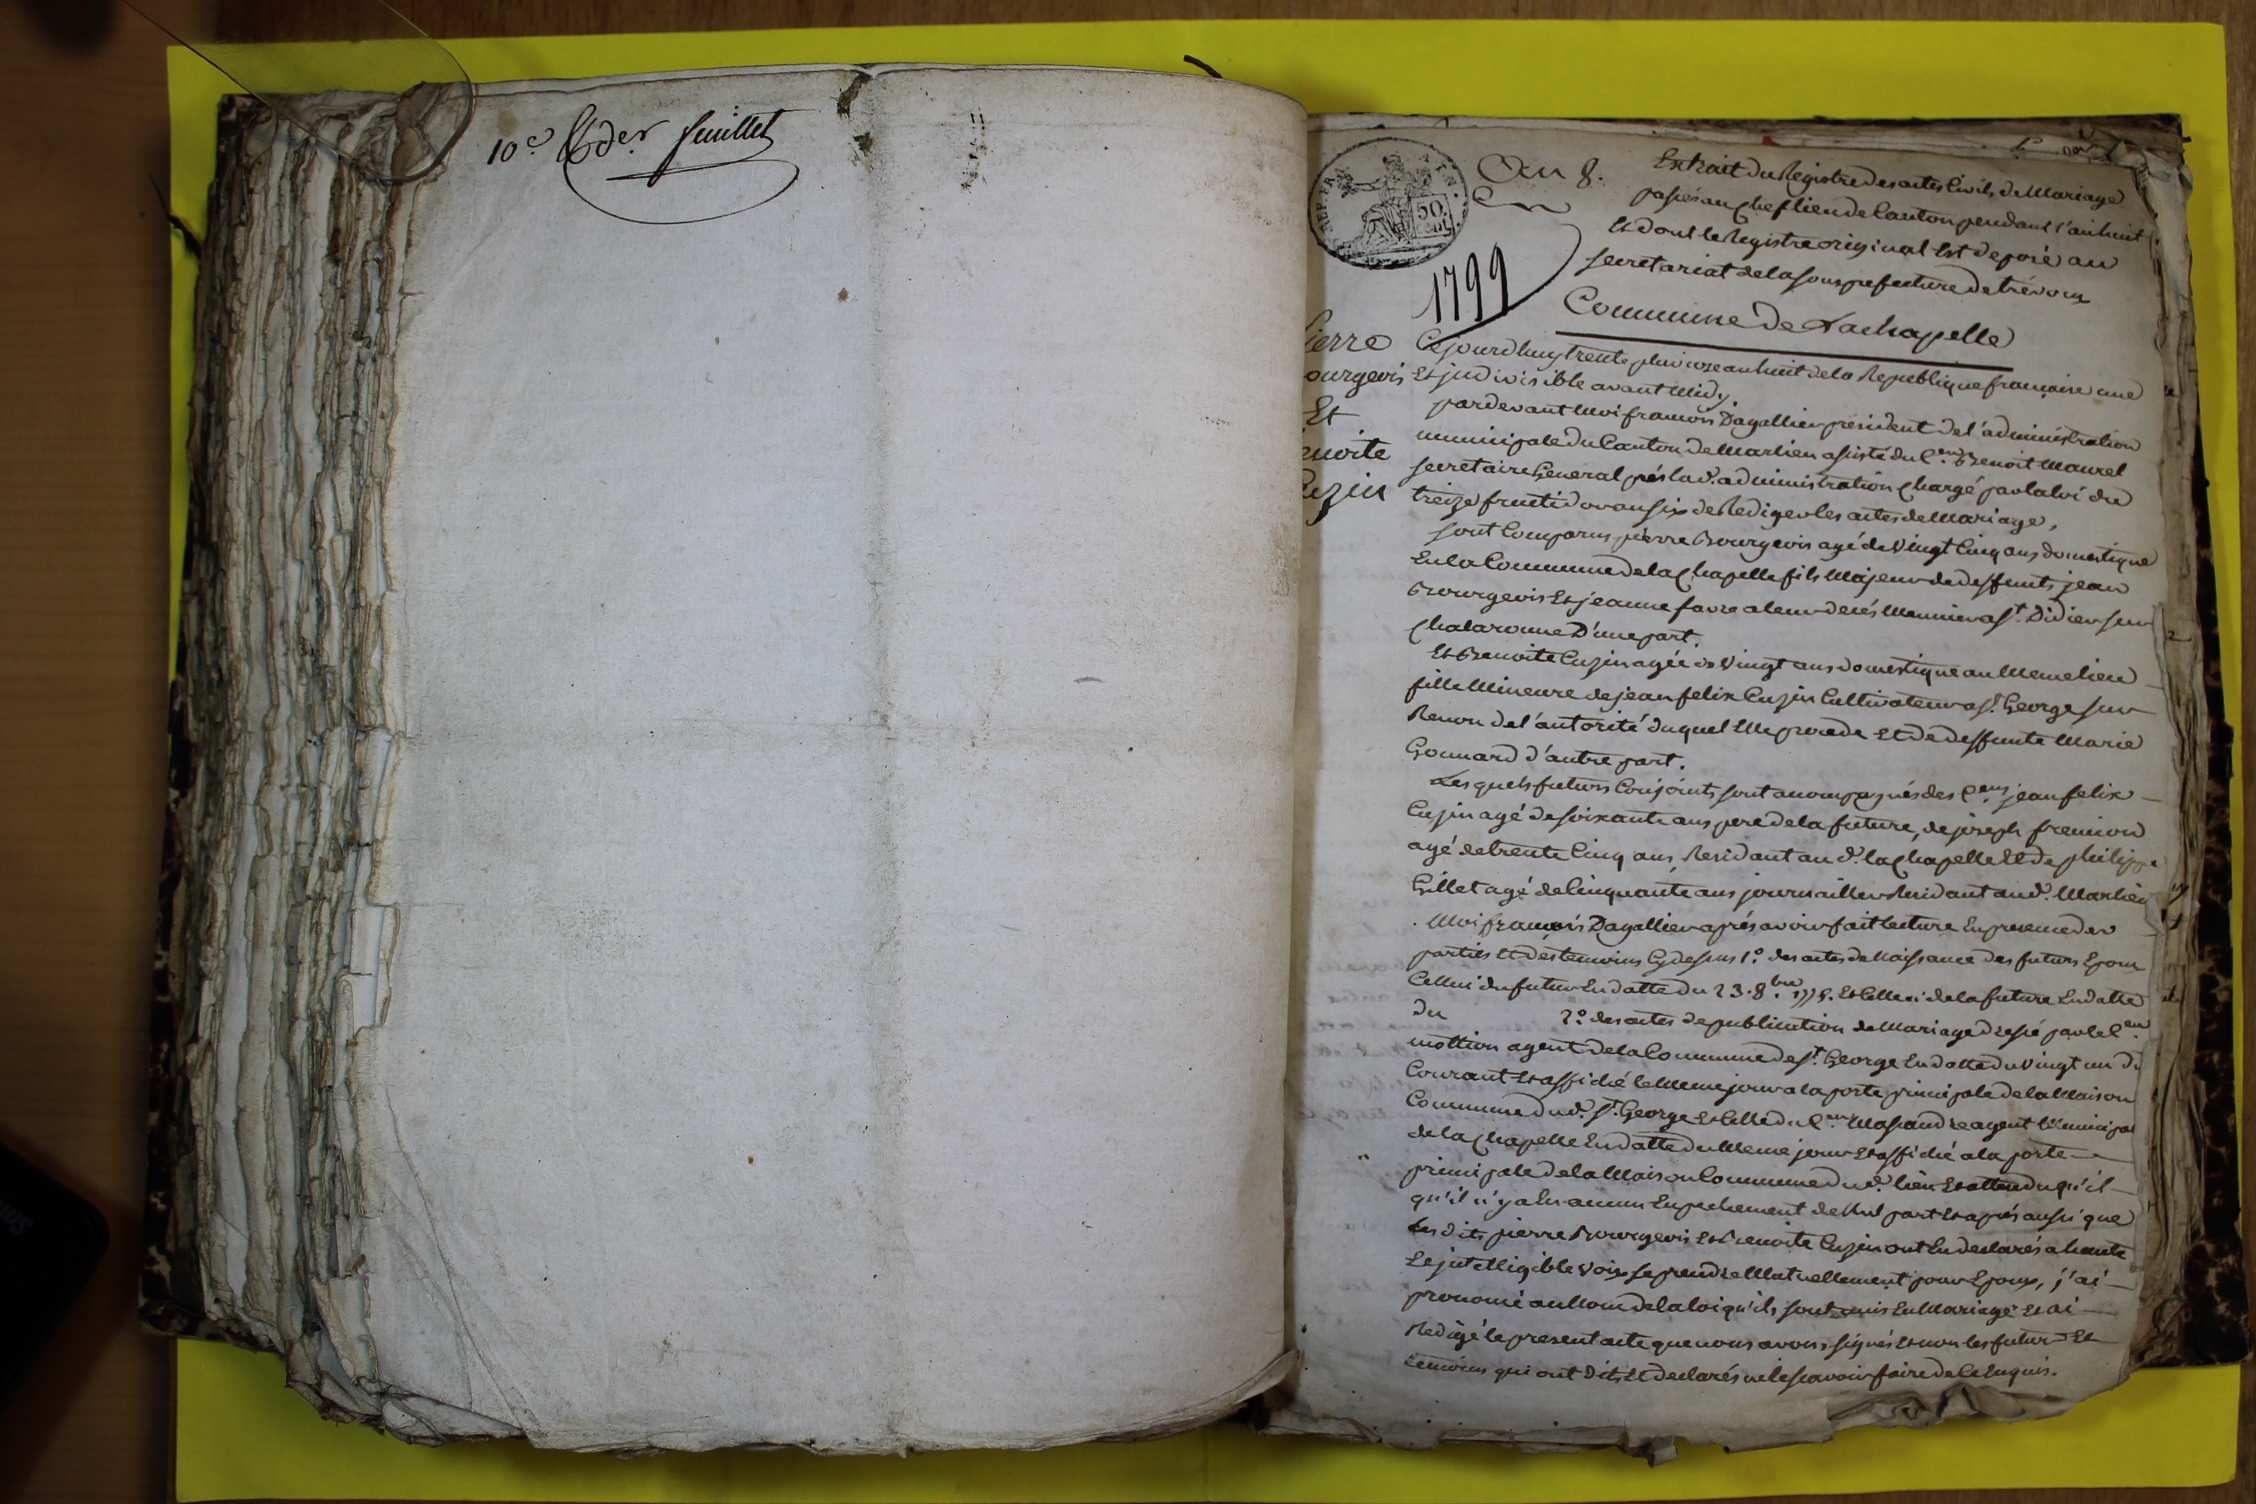 10e. & der. feuillet
REP. FRA
50.
An 8.
1799
Extrait du Registre des actes Civils de Mariage
passés au Chef lieu de Canton pendant l'an huit
Et dont le Registre original Est deposé au
secretariat de la sous prefecture de trévoux
Commune de Lachapelle
ierre
ourgeois
Et
enoite
uzin
Cejourd'huy trente pluviose an huit de la Republique francaise une
Et indivisible avant Midy.
pardevant Moi francois Dagallier president de l'administration
municipale du Canton de Marlieu assisté du Cen. Benoit Maurel
secretaire General prés lad. administration Chargé par la loi du
treize fructidor an six de Rediger les actes de Mariage,
sont Comparus pierre Bourgeois agé de Vingt Cinq ans domestique
En la Commune de la Chapelle fils Majeur de deffunts jean
Bourgeois Et jeanne favre a leur decés Meunier a St. Didier sur
Chalaronne D'une part.
Et Benoite Cuzin agée de Vingt ans domestique au Meme lieu
fille Mineure de jean felix Cuzin Cultivateur a St. George sur
Renon de l'autorité duquel Elle procede Et de deffunte Marie
Gonnard d'autre part.
Lesquels futurs Conjoints sont accompagnés des Cens. jean felix
Cuzin agé de soixante ans pere de la future, de joseph fremion
agé de trente Cinq ans, Residant aud. la Chapelle Et de philippe
Gillet agé de Cinquante ans journaillier Residant aud. Marlieu
. Moi francois Dagallier aprés avoir fait lecture En presence des
parties Et des temoins Cy dessus 1o. des actes de Naissance des futurs Epoux
Cellui du futur En datte du 23. 8bre. 1775. Et Celle ci de la future En datte
du 2o. des actes de publication de Mariage dressé par le Cen.
mottion agent de la Commune de St. George En datte du Vingt un du
Courant Et affiché le Meme jour a la porte principale de la Maison
Commune dud. St. George Et Celle du Cen. Massandre agent Municipal
de la Chapelle En datte du Meme jour Et affiché a la porte
principale de la Maison Commune dud. lieu Et attendu qu'il
qu'il n'y a Eu aucun Enpechement de Nul part Et aprés aussi que
les dits pierre Bourgeois Et Benoite Cuzin ont Eu declarés a haute
Et intelligible Voix se prendre Mutuellement pour Epoux, j'ai
prononcé au Nom de la loi qu'ils sont unis En Mariage Et ai
Redigé le present acte que nous avons signés Et non les futurs Et
temoins qui ont dits Et declarés ne le scavoir faire de ce Enquis.